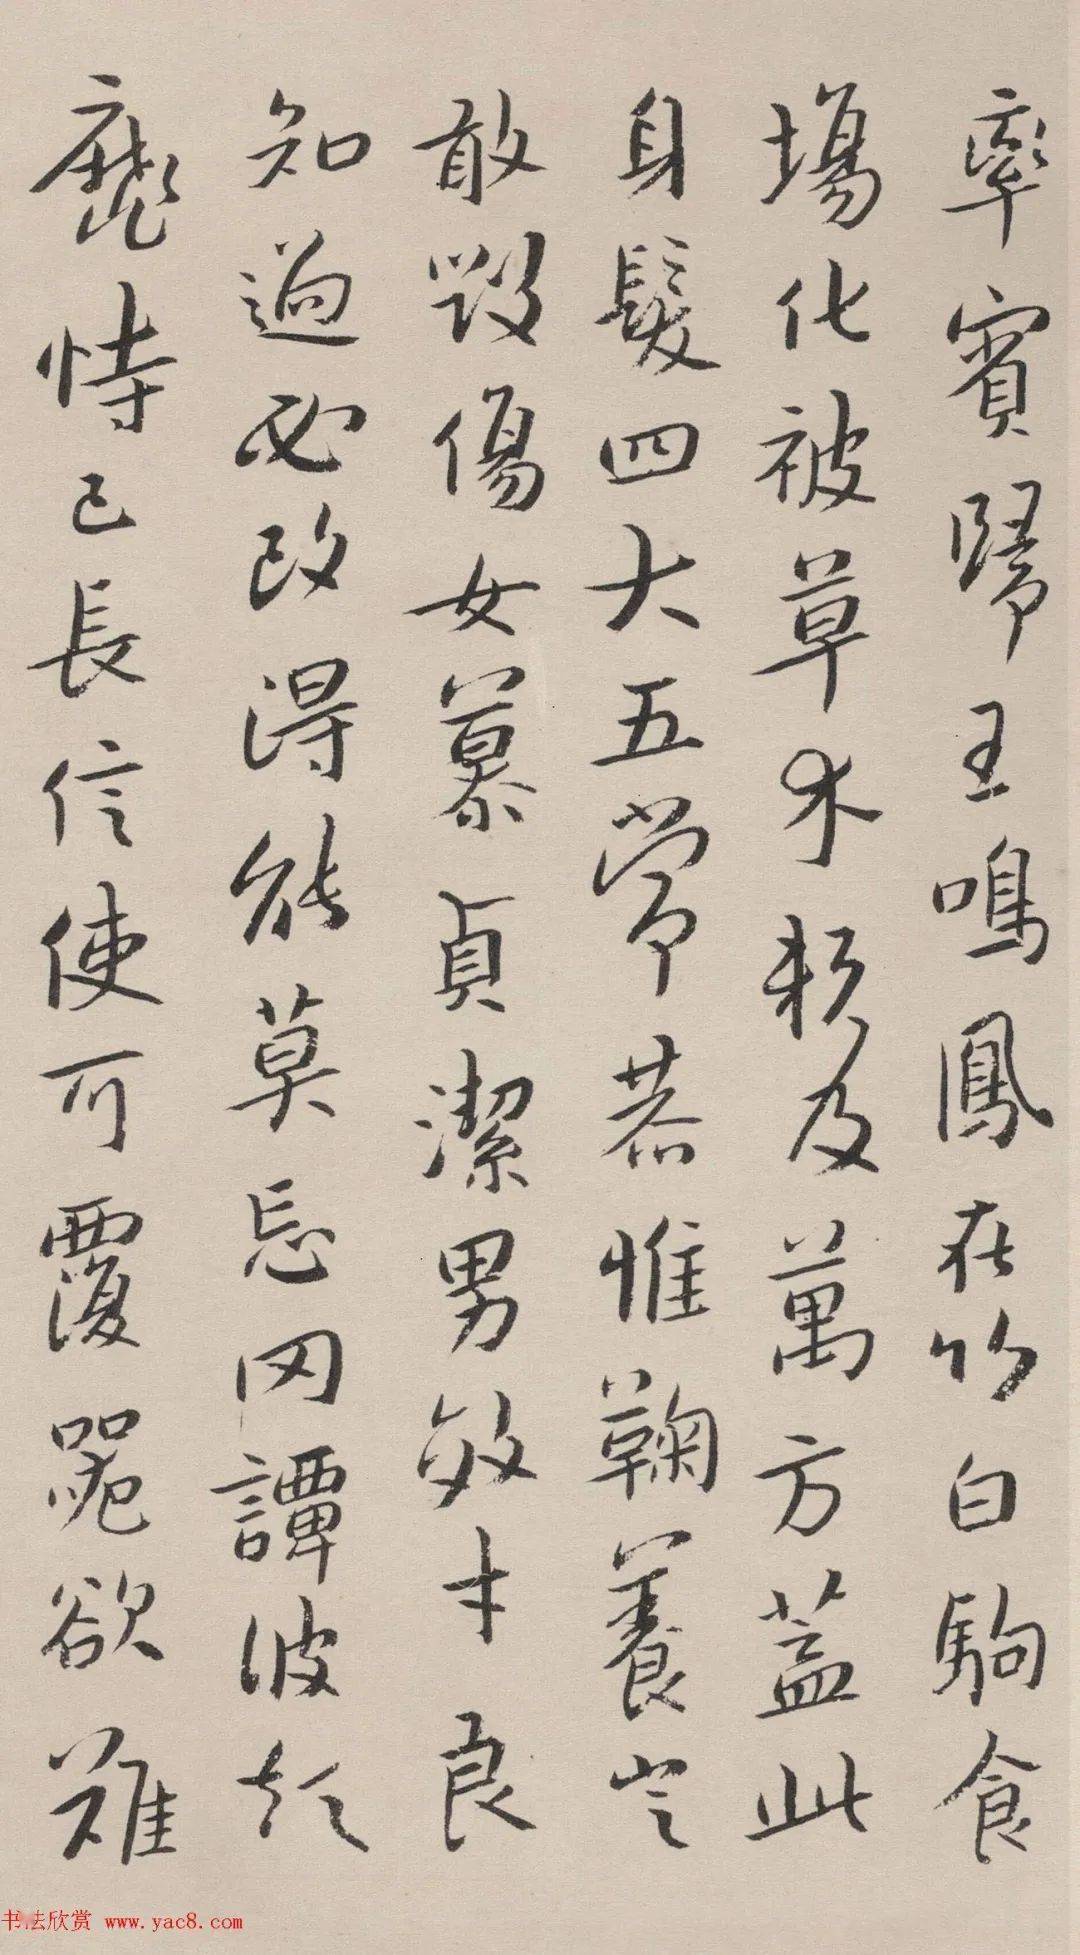 率賓歸王鳴鳳在竹白駒食
場化被草木賴及萬方蓋此
身髮四大五常恭惟鞠養豈
敢毀傷女慕貞潔男效才良
知過必改得能莫忘罔譚彼短
靡恃己長信使可覆器欲難
书法欣赏 www.yac8.com